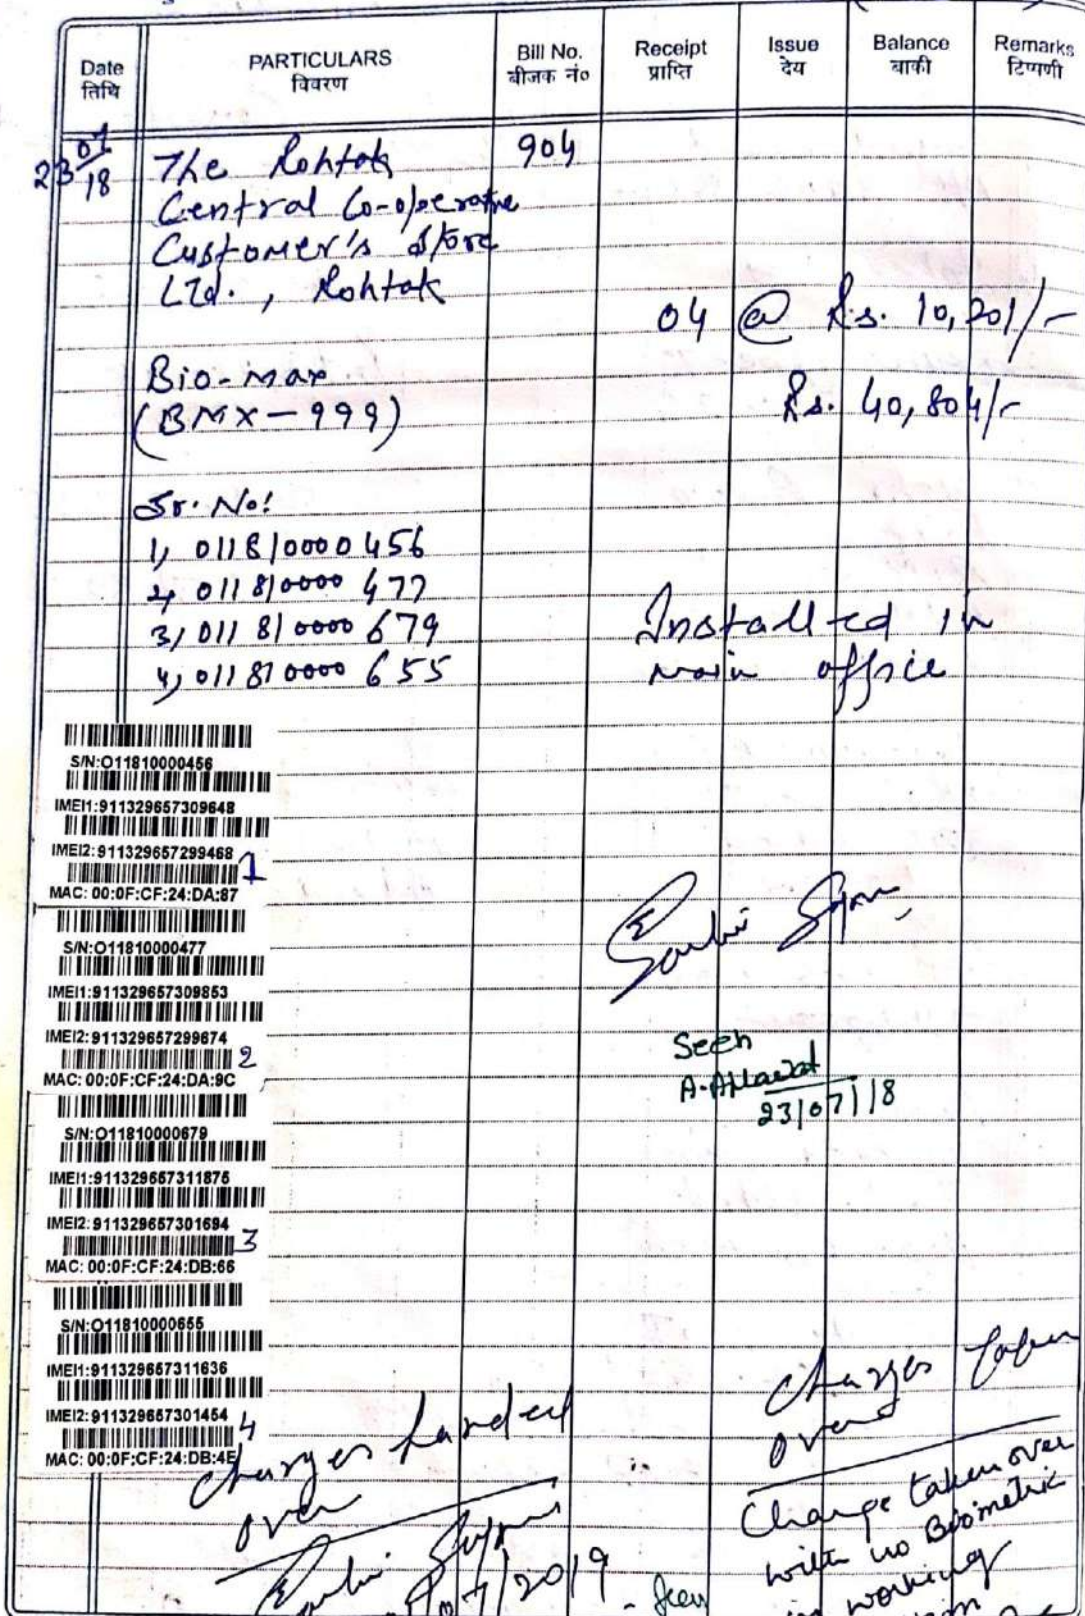 Date
तिथि
PARTICULARS
विवरण
Bill No.
बीजक नं०
Receipt
प्राप्ति
Issue
देय
Balance
बाकी
Remarks
टिप्पणी
23/07/18
The Rohtak 904
Central Co-operative
Customer's Store
Ltd., Rohtak
04 @ Rs. 10,201/-
Bio-max
(BMX-999)
Rs. 40,804/-
Sr. No:
1, 011810000456
2, 011810000477
3, 011810000679
4, 011810000655
Installed in
main office
S/N:O11810000456
IMEI1:911329657309648
IMEI2:911329657299468
1
MAC: 00:0F:CF:24:DA:87
S/N:O11810000477
IMEI1:911329657309853
IMEI2:911329657299674
2
MAC: 00:0F:CF:24:DA:9C
S/N:O11810000679
IMEI1:911329657311875
IMEI2:911329657301694
3
MAC: 00:0F:CF:24:DB:66
S/N:O11810000655
IMEI1:911329657311636
IMEI2:911329657301454
4
MAC: 00:0F:CF:24:DB:4E
Seen
A. Ahlawat
23/07/18
Charges handed
over
07/2019
Seen
Charges taken
over
Charge taken over
with no Biometric
in working